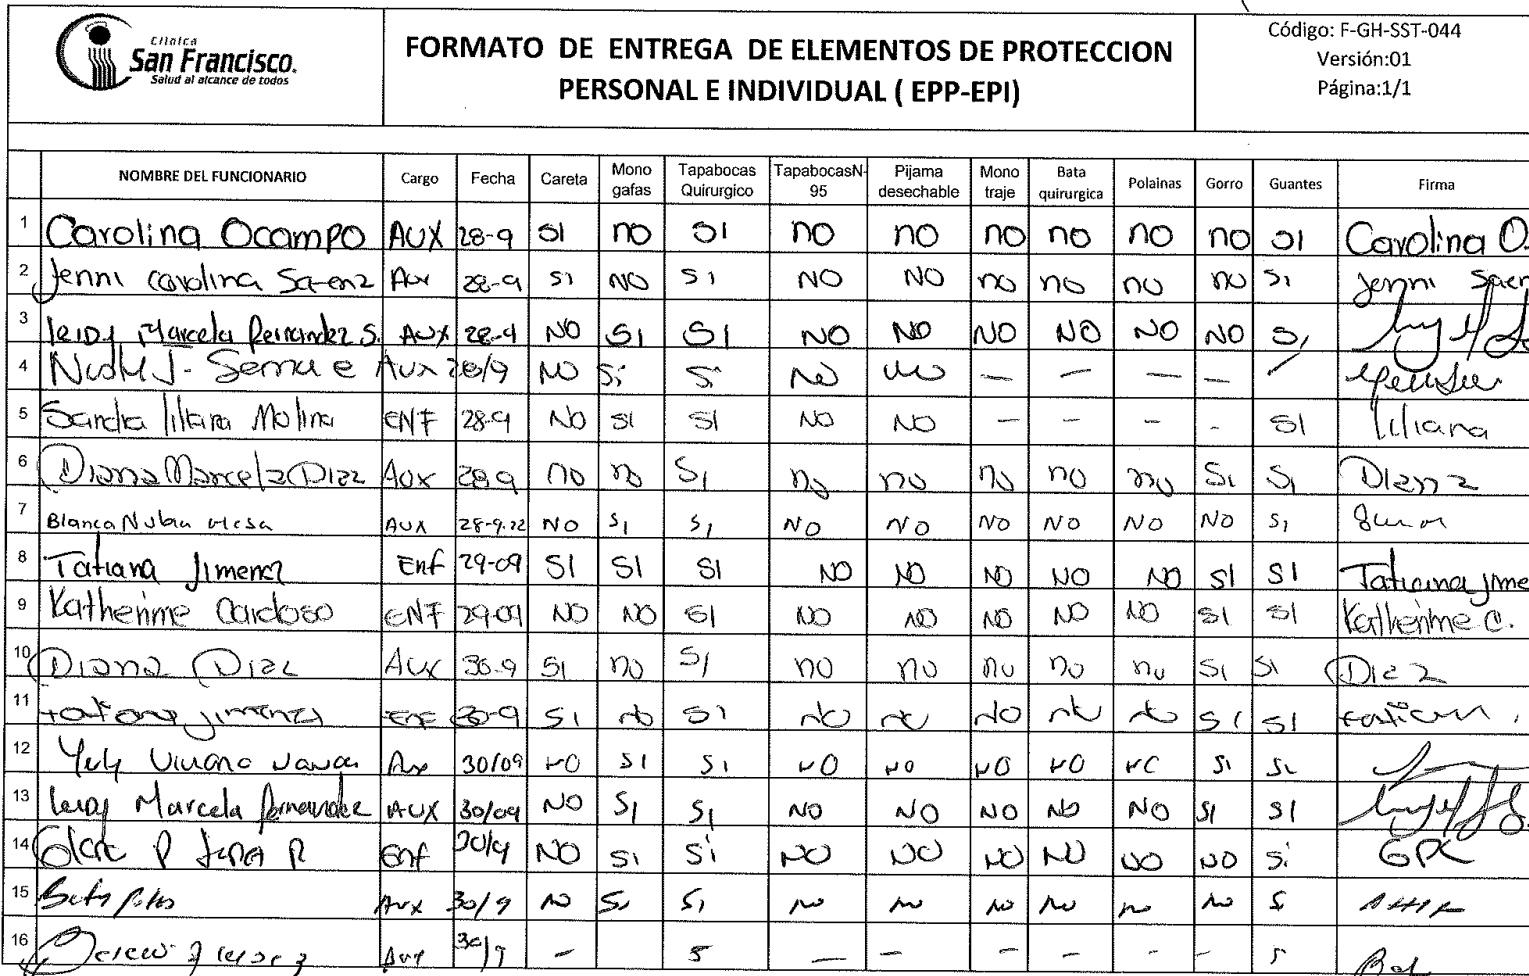 Clínica
San Francisco.
Salud al alcance de todos
FORMATO DE ENTREGA DE ELEMENTOS DE PROTECCION
PERSONAL E INDIVIDUAL ( EPP-EPI)
Código: F-GH-SST-044
Versión:01
Página:1/1
NOMBRE DEL FUNCIONARIO Cargo Fecha Careta Mono gafas Tapabocas Quirurgico TapabocasN-95 Pijama desechable Mono traje Bata quirurgica Polainas Gorro Guantes Firma
1 Carolina Ocampo AUX 28-9 SI no SI no no no no no no SI Carolina O.
2 Jenni carolina Saenz Aux 28-9 Si NO Si NO NO no no no no Si Jenni Saen
3 leidy Marcela Fernandez S. AUX 28-9 NO SI SI NO NO NO NO NO NO Si
4 J. Serna e Aux 28/9 NO Si Si No No — — — —
5 Sandra liliana Molina ENF 28-9 NO SI SI NO NO — — — - SI liliana
6 Diana Marcela Diaz Aux 28 9 no no Si no no no no no Si Si Diana
7 Blanca Nubia Mesa AUX 28-9-22 NO Si Si NO NO NO NO NO NO Si
8 Tatiana Jimenez Enf 29-09 SI SI SI NO NO NO NO NO SI SI Tatiana Jime
9 Katherine Cardoso ENF 29-09 NO NO SI NO NO NO NO NO SI SI Katherine C.
10 Diana Diaz Aux 30-9 SI no SI no no no no no SI SI Diaz
11 tatiana jimenez Enf 30-9 SI no SI no no no no no SI SI
12 Yuly Viviana Aux 30/09 NO SI SI NO NO NO NO NO SI Si
13 leidy Marcela fernandez AUX 30/09 NO Si Si NO NO NO NO NO SI SI
14 P R Enf 30/9 NO Si Si NO NO NO NO NO NO Si
15 Aux 30/9 NO Si Si No No No No No No S
16 Aux 30/9 — S — — — — — — S